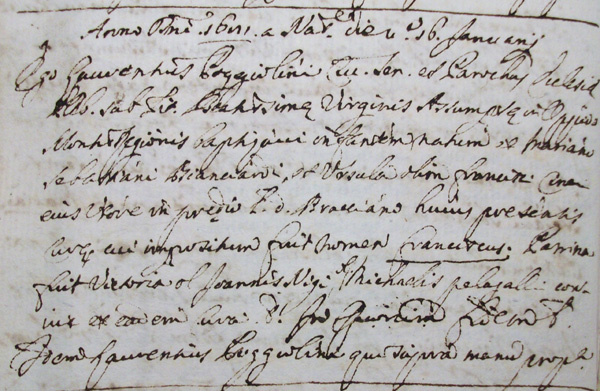 Anno Dni 1611. a Nate die v.° 16. Januarij
Ego Lauventius Poggiolini Parochus
sub tit. Beatissimę Virginis Assumptę in Oppido
Montis Regionis baptizavi infantem natum ex Mariano
Sebastiani Bianciardi, et Ursula olim Francisci
eius Uxore in predio d. Bracciano huius presentis
curę cui impositum fuit nomen Franciscus. Patrina
fuit Victoria ol Joannis Michaelis pelagalli con-
iux ex eadem cura. In quorum fidem
Idem Lauventius Poggiolini qui supra manu prop.ᵃ